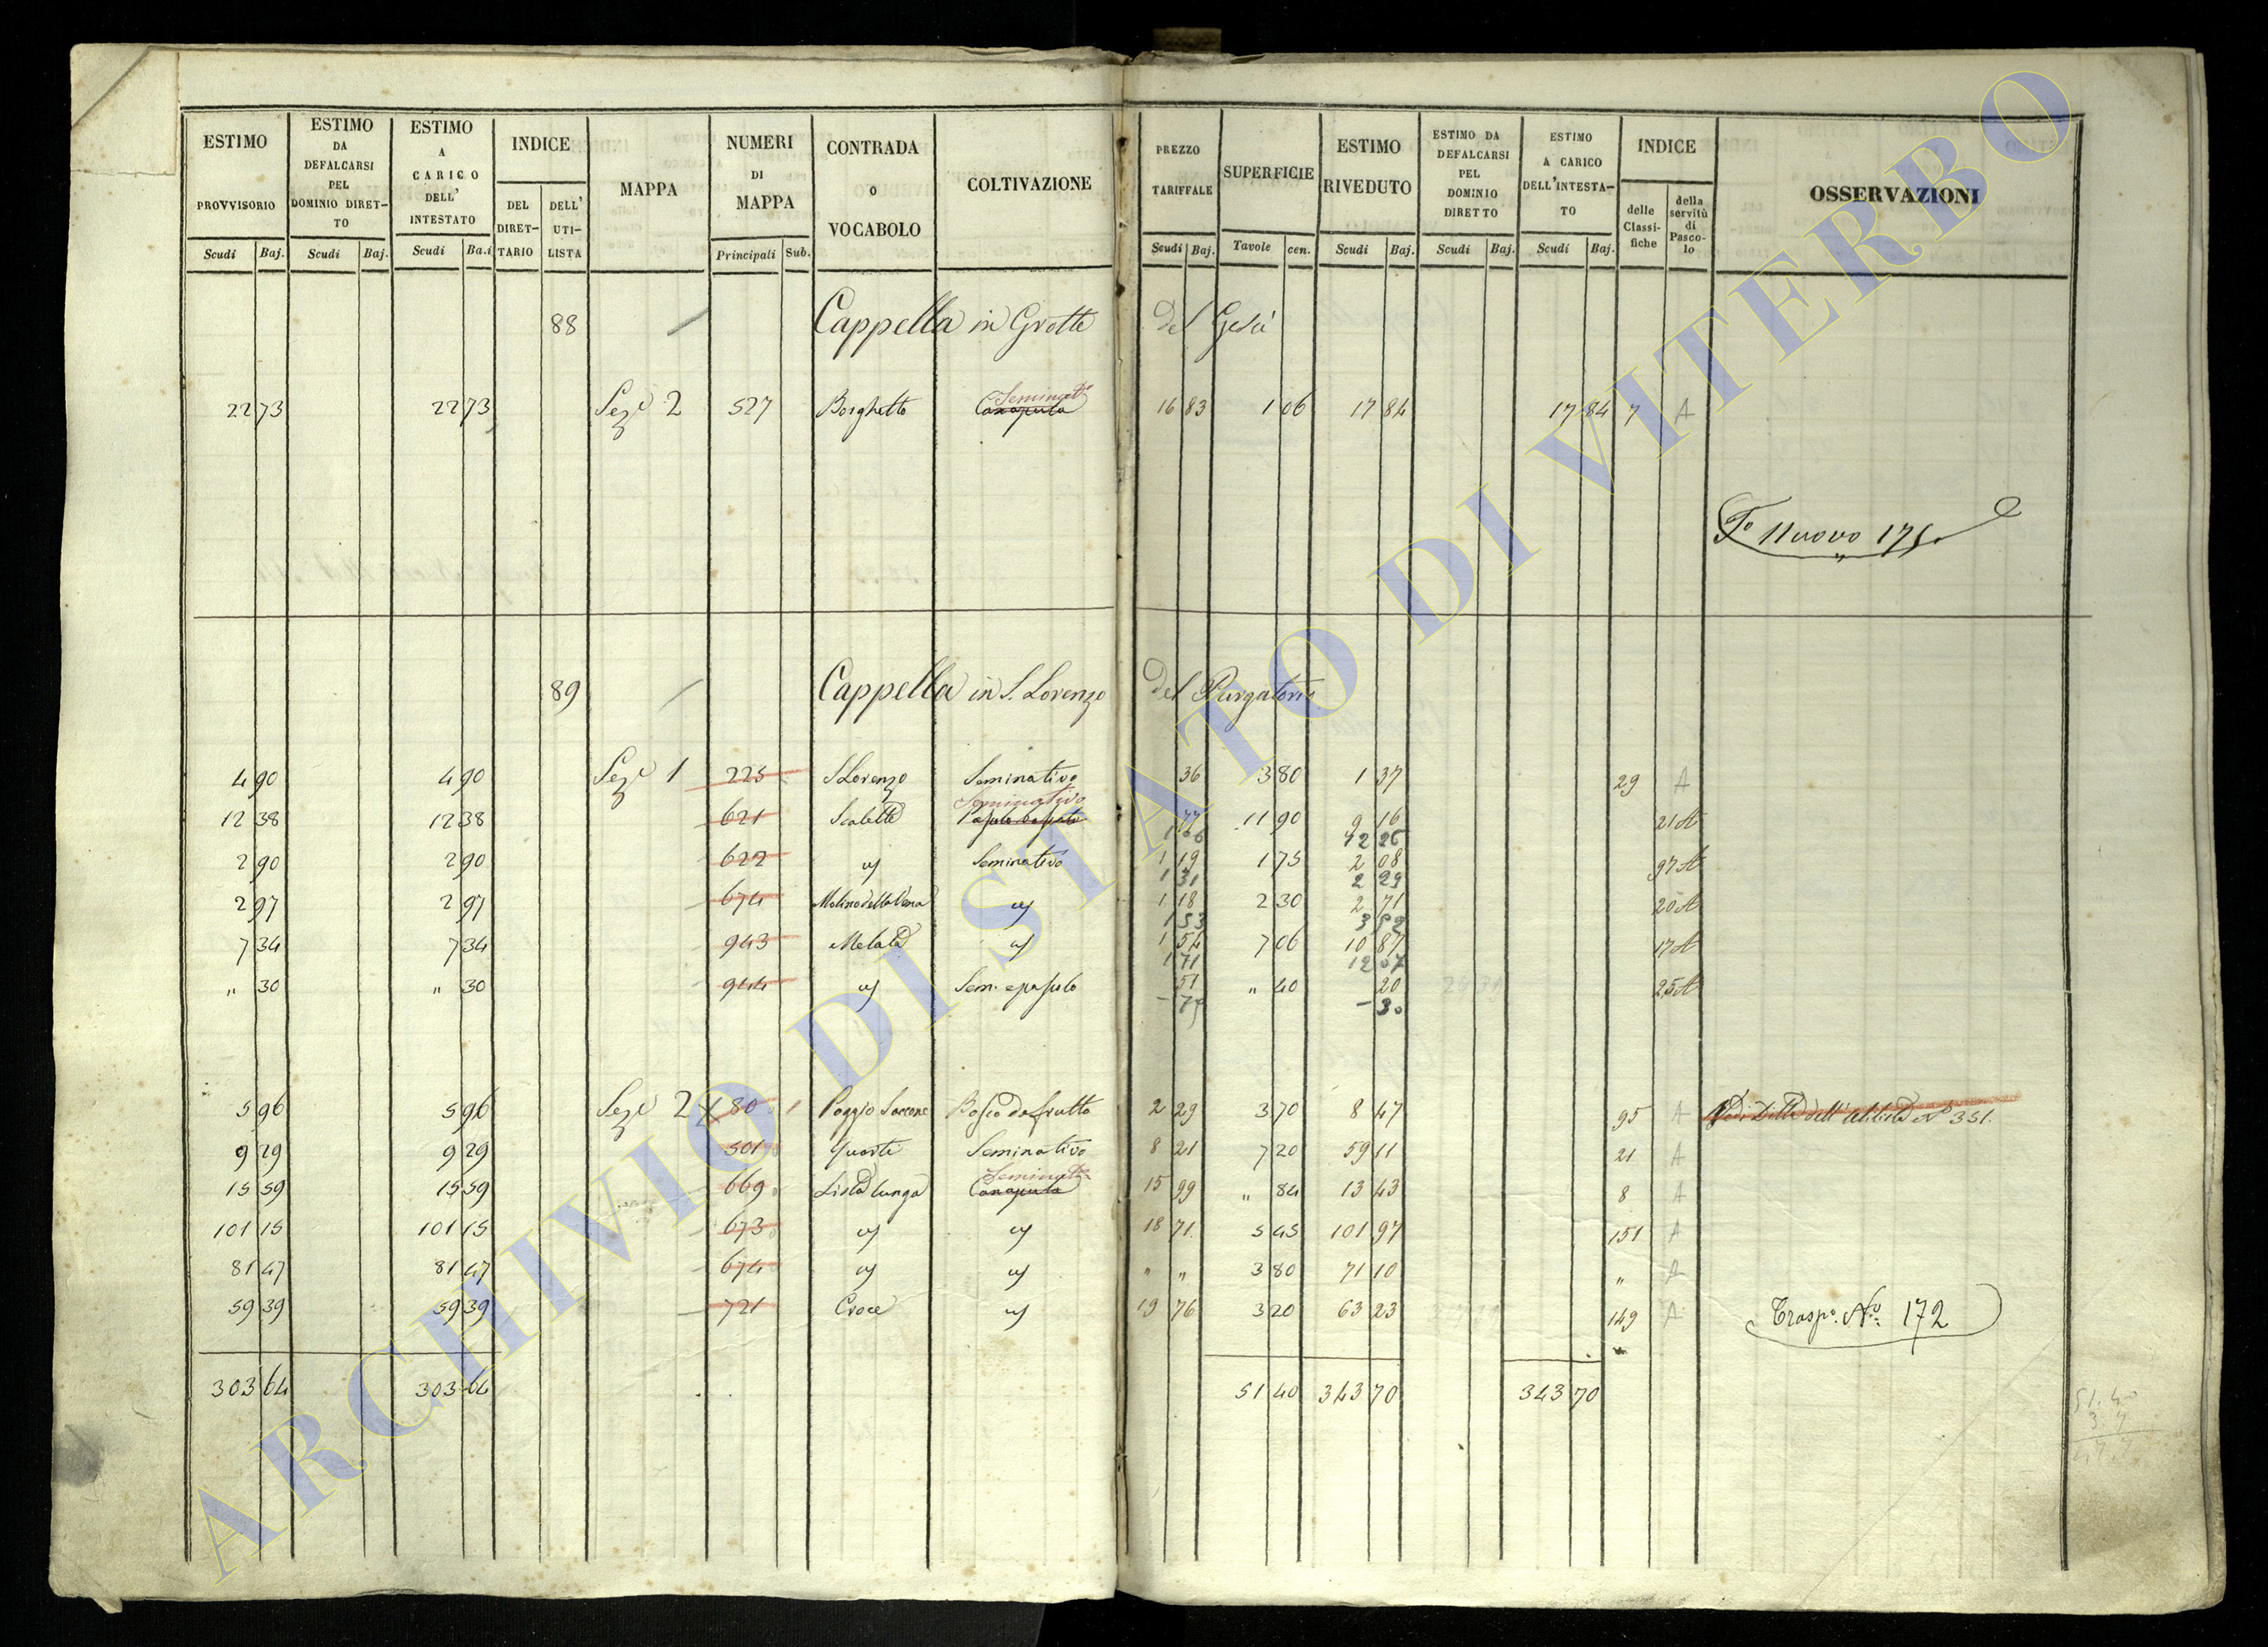 ESTIMO PROVVISORIO Scudi Baj.
ESTIMO DA DEFALCARSI PEL DOMINIO DIRET-TO Scudi Baj.
ESTIMO A CARICO DELL' INTESTATO Scudi Ba.i
INDICE DEL DIRET-TARIO DELL' UTI-LISTA
MAPPA
NUMERI DI MAPPA Principali Sub.
CONTRADA O VOCABOLO
COLTIVAZIONE
PREZZO TARIFFALE Scudi Baj.
SUPERFICIE Tavole cen.
ESTIMO RIVEDUTO Scudi Baj.
ESTIMO DA DEFALCARSI PEL DOMINIO DIRETTO Scudi Baj.
ESTIMO A CARICO DELL'INTESTA-TO Scudi Baj.
INDICE delle Classi-fiche della servitù di Pasco-lo
OSSERVAZIONI
88 Cappella in Grotte del Gesù
22 73 22 73 Sez.e 2 527 Borghetto Canapula Seminat.o 16 83 1 06 17 84 17 84 7 A
F.o Nuovo 175.
89 Cappella in S. Lorenzo del Purgatorio
4 90 4 90 Sez.e 1 225 S Lorenzo Seminativo 36 3 80 1 37 29 A
Seminativo
12 38 12 38 621 Scalette 77 11 90 9 16 21 A
1 06 12 26
2 90 2 90 622 " Seminativo 1 19 1 75 2 08 97 A
1 31 2 29
2 97 2 97 674 Molino della Vena " 1 18 2 30 2 71 20 A
1 53 3 52
7 34 7 34 943 Melata " 1 54 7 06 10 87 17 A
1 71 12 07
" 30 " 30 944 " Sem. e pascolo 51 " 40 20 25 A
- 75 - 30
5 96 5 96 Sez.e 2 80 1 Poggio Saccone Bosco da frutto 2 29 3 70 8 47 95 A Vedi Ditta dell' Utilista N.o 351.
9 29 9 29 501 Quarti Seminativo 8 21 7 20 59 11 21 A
15 59 15 59 669 Lista lunga Canapula Seminat.o 15 99 " 84 13 43 8 A
101 15 101 15 673 " " 18 71 5 45 101 97 151 A
81 47 81 47 674 " " " " 3 80 71 10 " A
59 39 59 39 721 Croce " 19 76 3 20 63 23 149 A Trasp.o N.o 172
303 64 303 64 51 40 343 70 343 70
51.40
ARCHIVIO DI STATO DI VITERBO